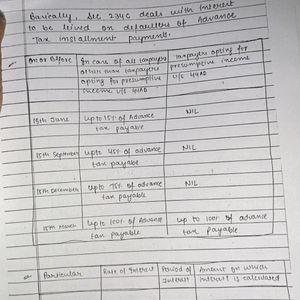 Basically, Sec 234C deals with Interest
to be levied on defaulters of Advance
Tax installment payments.
On or Before
In case of all taxpayers
other than taxpayers
opting for presumptive
income u/s 44AD
Taxpayers opting for
presumptive income
u/s 44AD
15th June
Upto 15% of Advance
tax payable
NIL
15th September
Upto 45% of advance
tax payable
NIL
15th December
Upto 75% of advance
tax payable
NIL
15th March
Upto 100% of Advance
tax payable
up to 100% of advance
tax payable
Particular
Rate of Interest
Period of
Interest
Amount on which
Interest is calculated